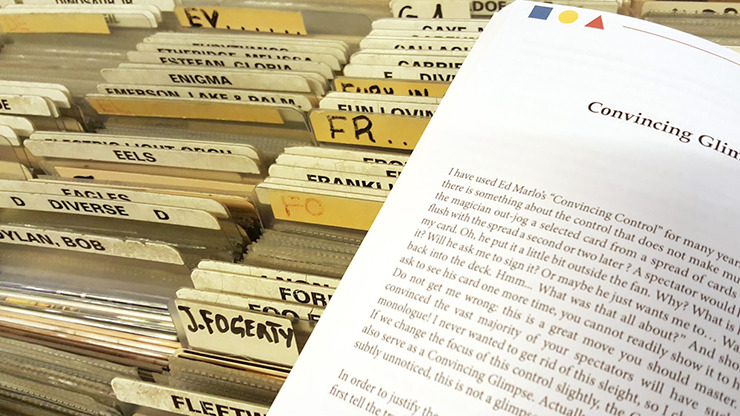 EV
ETHERIDGE, MELISSA
ESTEFAN, GLORIA
ENIGMA
EMERSON, LAKE & PALM
EELS
EAGLES
D DIVERSE D
DYLAN, BOB
GA
CAVE
GABRIE
E DIVE
FUN LOVIN
FR...
FRANKLI
FO
FOR
FOO F
J. FOGERTY
FLEETW
Convincing Glim
I have used Ed Marlo's "Convincing Control" for many year
there is something about the control that does not make mu
the magician out-jog a selected card from a spread of cards
flush with the spread a second or two later? A spectator would
my card. Oh, he put it a little bit outside the fan. Why? What is
it? Will he ask me to sign it? Or maybe he just wants me to... Wa
back into the deck. Hmm... What was that all about?" And she
ask to see his card one more time, you cannot readily show it to h
Do not get me wrong: this is a great move you should master.
convinced the vast majority of your spectators will have
monologue! I never wanted to get rid of this sleight, so
If we change the focus of this control slightly, the C
also serve as a Convincing Glimpse. Actually
subtly unnoticed, this is not a glimps
In order to justify the
first tell the tr